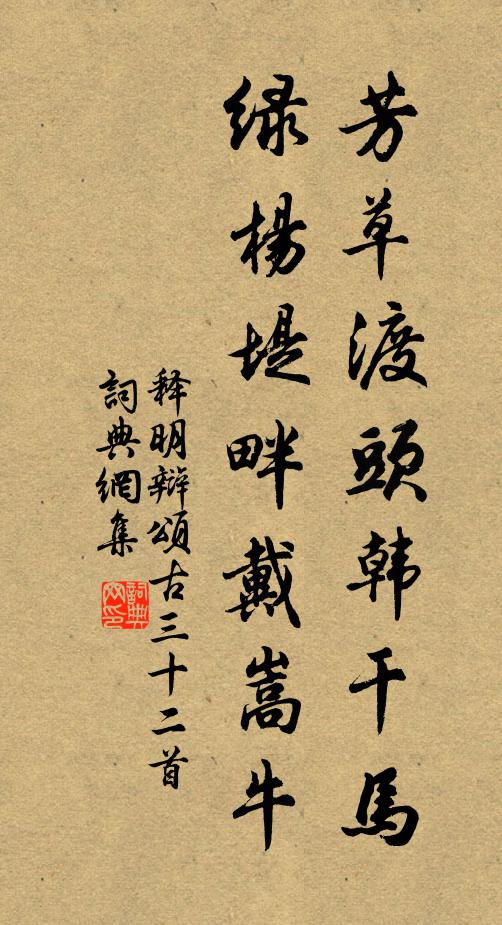 芳草渡頭韩干馬
绿楊堤畔戴嵩牛
释明辯頌古三十二首
詞典網集
詞典网印